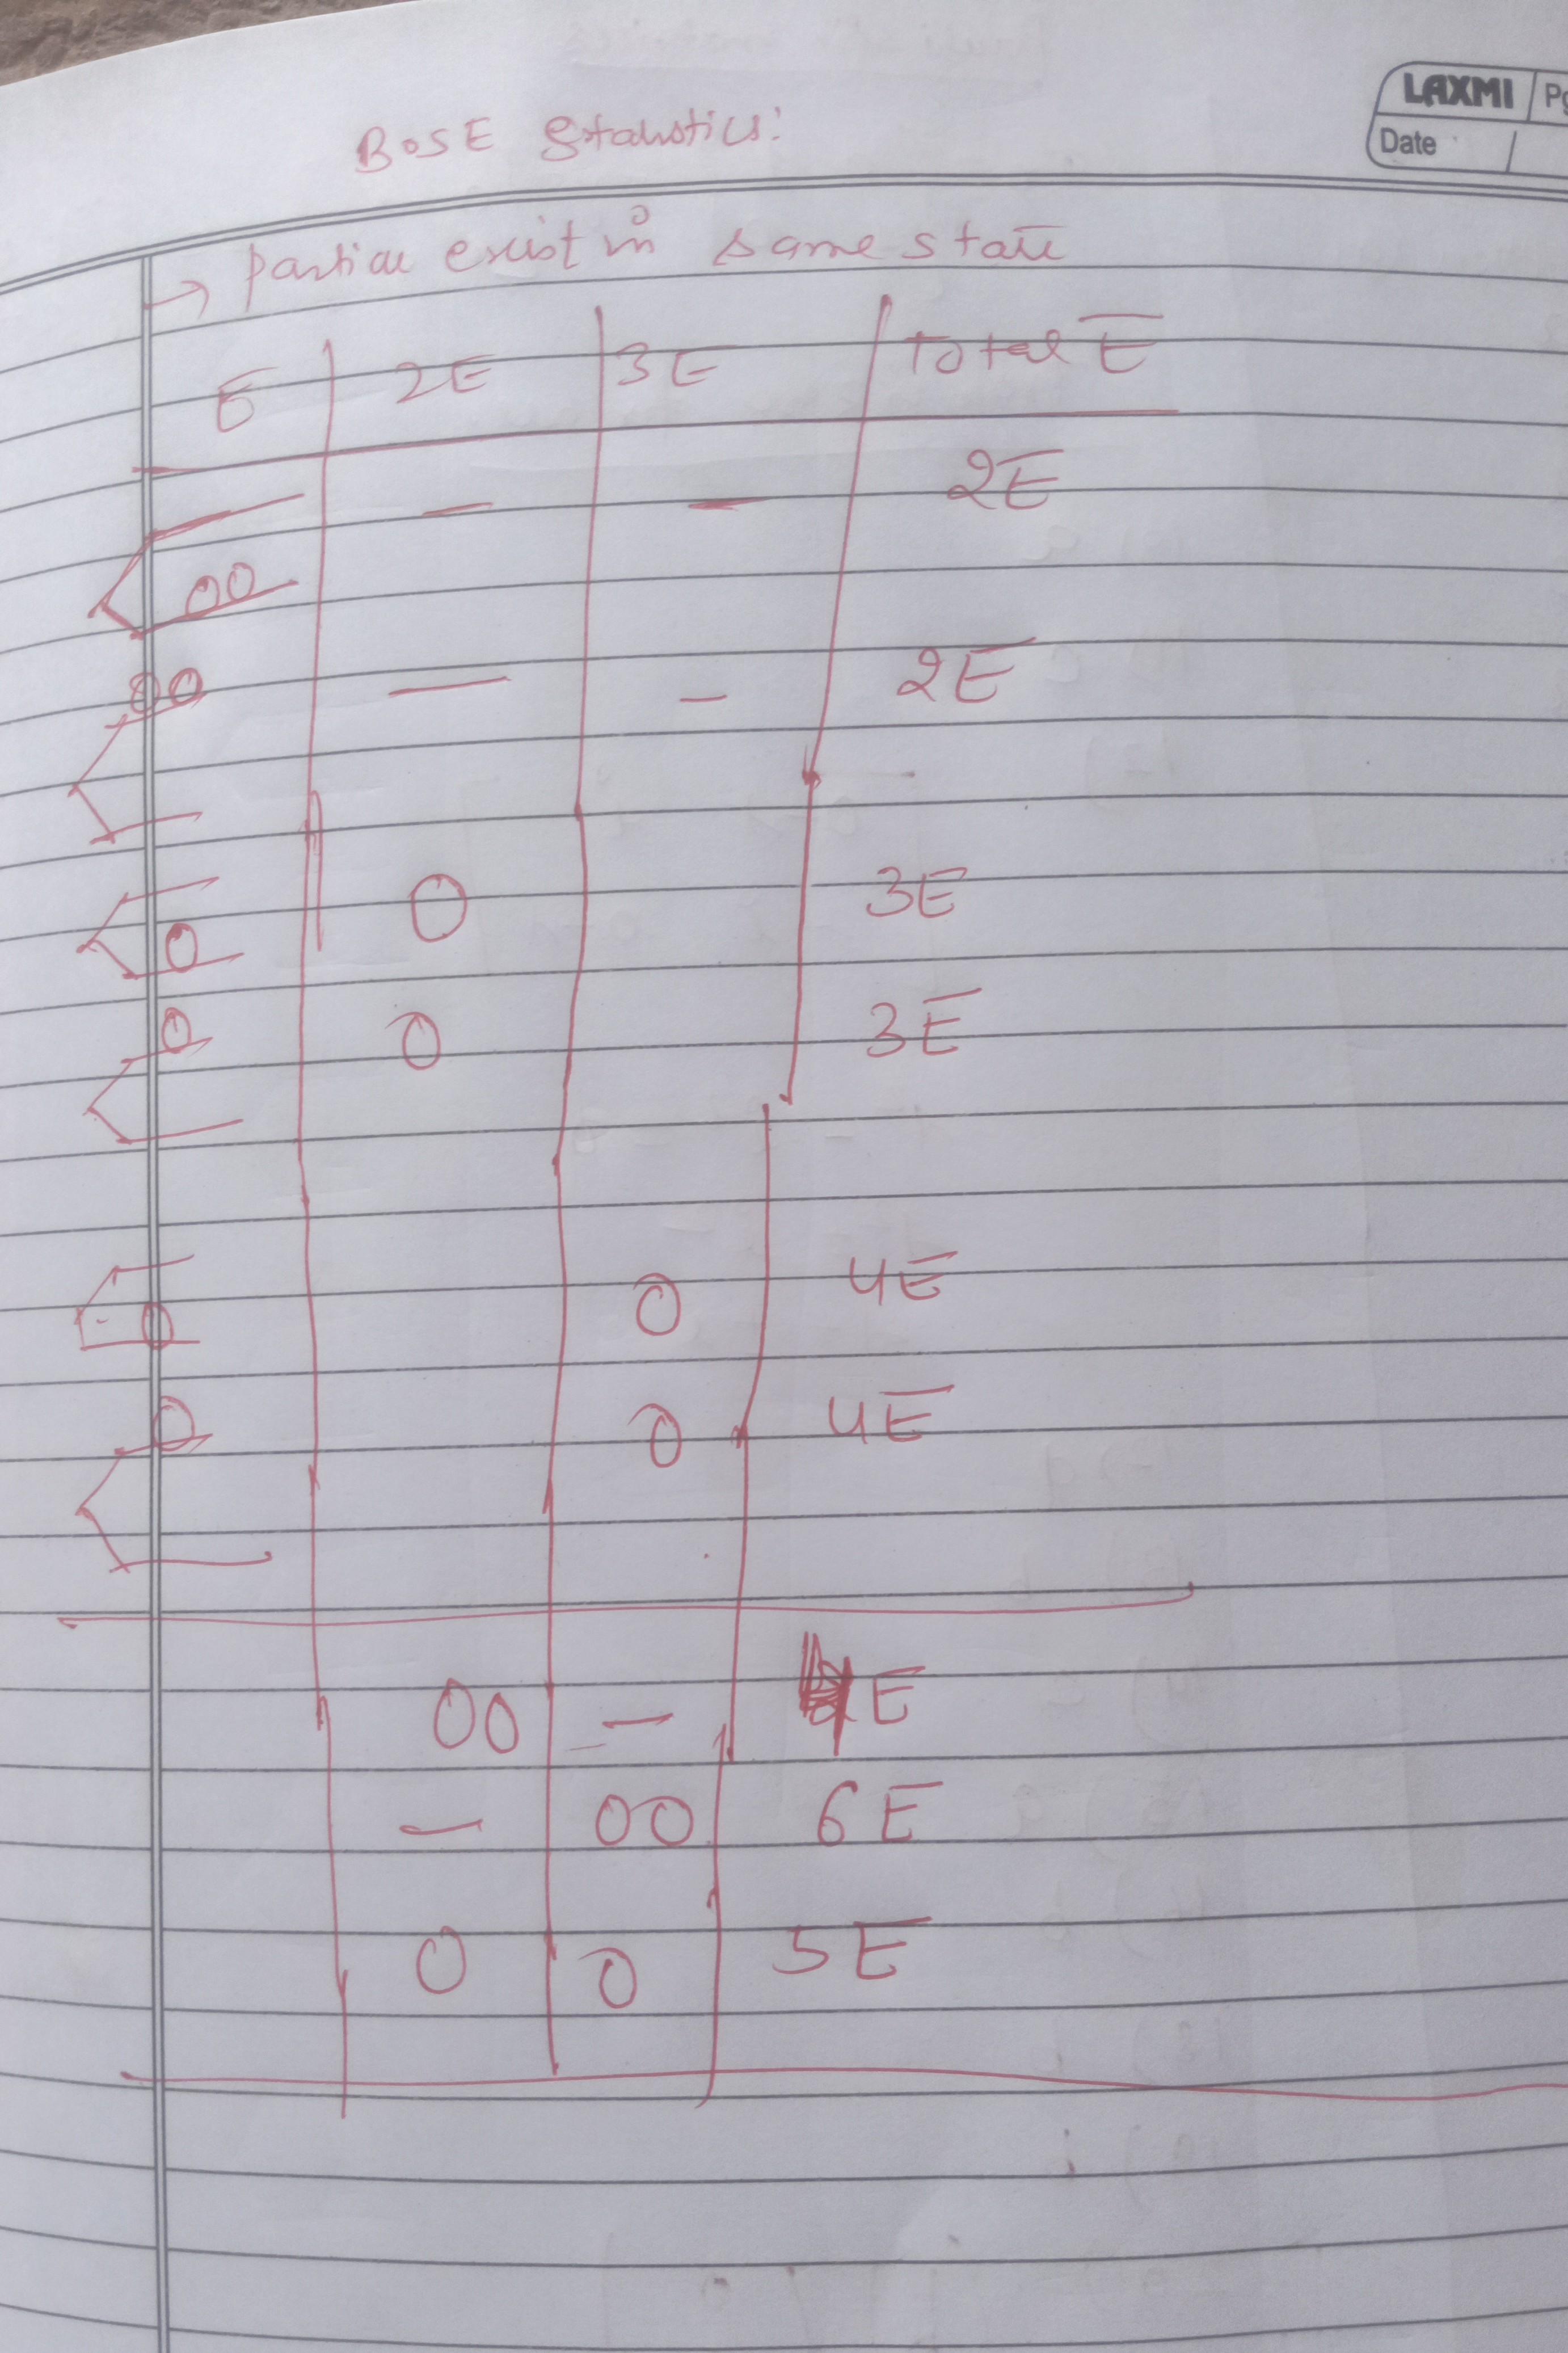 LAXMI Pg
Date
BOSE Statistics:
→ particle exist in same state
E | 2E | 3E | Total E
— | — | — | 2E
00
00 | — | — | 2E
0 | 0 | 3E
0 | 0 | 3E
0 | 0 | 4E
0 | 0 | 4E
00 | — | 4E
— | 00 | 6E
0 | 0 | 5E